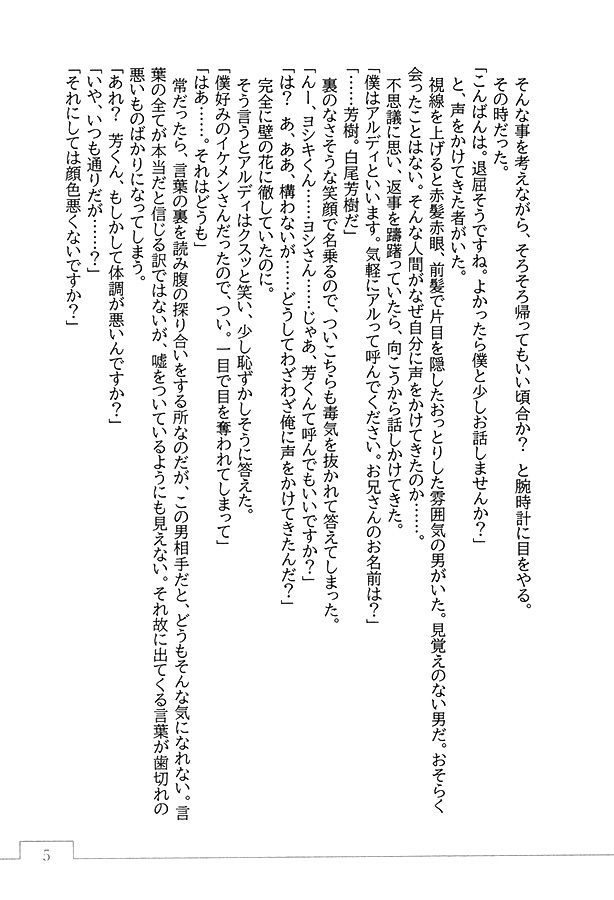 そんな事を考えながら、そろそろ帰ってもいい頃合か？　と腕時計に目をやる。
その時だった。
「こんばんは。退屈そうですね。よかったら僕と少しお話しませんか？」
と、声をかけてきた者がいた。
視線を上げると赤髪赤眼、前髪で片目を隠したおっとりした雰囲気の男がいた。見覚えのない男だ。おそらく
会ったことはない。そんな人間がなぜ自分に声をかけてきたのか……。
不思議に思い、返事を躊躇っていたら、向こうから話しかけてきた。
「僕はアルディといいます。気軽にアルって呼んでください。お兄さんのお名前は？」
「……芳樹。白尾芳樹だ」
裏のなさそうな笑顔で名乗るので、ついこちらも毒気を抜かれて答えてしまった。
「んー、ヨシキくん……ヨシさん……じゃあ、芳くんて呼んでもいいですか？」
「は？　あ、ああ、構わないが……どうしてわざわざ俺に声をかけてきたんだ？」
完全に壁の花に徹していたのに。
そう言うとアルディはクスッと笑い、少し恥ずかしそうに答えた。
「僕好みのイケメンさんだったので、つい。一目で目を奪われてしまって」
「はあ……。それはどうも」
常だったら、言葉の裏を読み腹の探り合いをする所なのだが、この男相手だと、どうもそんな気になれない。言
葉の全てが本当だと信じる訳ではないが、嘘をついているようにも見えない。それ故に出てくる言葉が歯切れの
悪いものばかりになってしまう。
「あれ？　芳くん、もしかして体調が悪いんですか？」
「いや、いつも通りだが……？」
「それにしては顔色悪くないですか？」
5